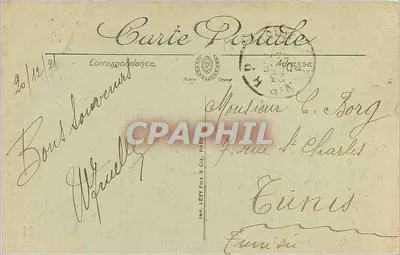 Carte Postale
Correspondance
Adresse
20/12/21
Bons Souvenirs
Monsieur C. Borg
7. rue St Charles
Tunis
Tunisie
CPAPHIL
IMP. LÉVY FILS & Cie, PARIS